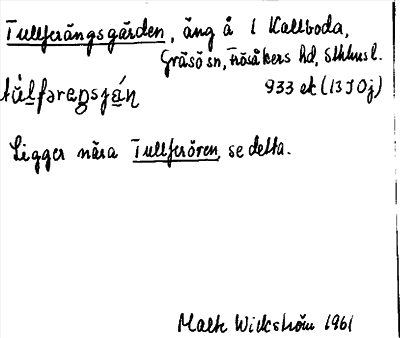 Tullferängsgärden, äng å 1 Kallboda,
Gräsö sn, Frösåkers hd, Sthlms l.
933 ek (13 I 0j)
Ligger nära Tullferören, se detta.
Malte Wickström 1961